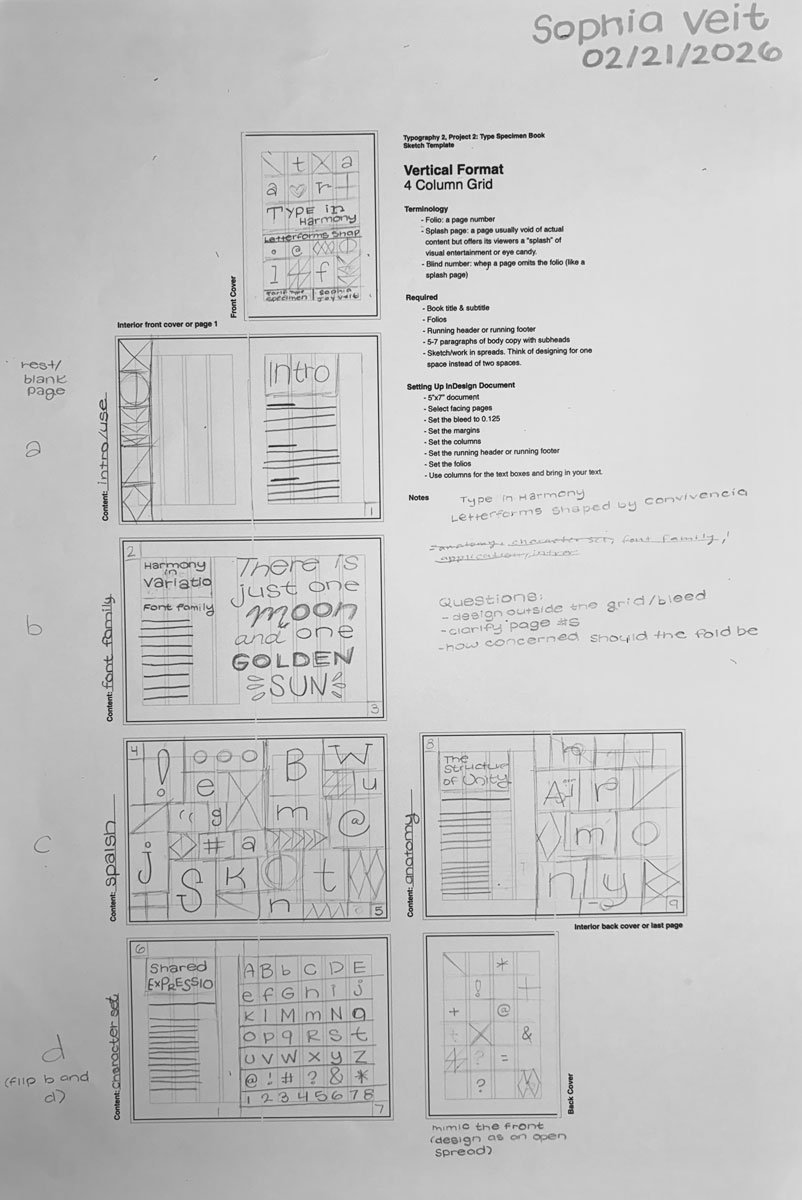 Sophia Veit
02/21/2026
Typography 2, Project 2: Type Specimen Book
Sketch Template
Vertical Format
4 Column Grid
Terminology
- Folio: a page number
- Splash page: a page usually void of actual
content but offers its viewers a "splash" of
visual entertainment or eye candy.
- Blind number: when a page omits the folio (like a
splash page)
Required
- Book title & subtitle
- Folios
- Running header or running footer
- 5-7 paragraphs of body copy with subheads
- Sketch/work in spreads. Think of designing for one
space instead of two spaces.
Setting Up InDesign Document
- 5"x7" document
- Select facing pages
- Set the bleed to 0.125
- Set the margins
- Set the columns
- Set the running header or running footer
- Set the folios
- Use columns for the text boxes and bring in your text.
Notes
Type in Harmony
Letterforms shaped by convivencia
- anatomy, character set, font family,
application, intro
Questions:
- design outside the grid/bleed
- clarify page #s
- how concerned should the fold be
Front Cover
t a
a r
Type in
Harmony
Letterforms Shap
@
l f
specimen Sophia
Joy Veit
Interior front cover or page 1
rest/
blank
page
a
Content: intro/use
Intro
1
b
Content: font family
2
Harmony
in
Variatio
Font family
There is
just one
moon
and one
GOLDEN
SUN
3
c
Content: spalsh
4
! B W
e u
" g m @
# a
j S K t
n
5
Content: anatomy
8
The
Structure
of Unity
A r
m o
n y
9
Interior back cover or last page
d
(flip b and
d)
Content: character set
6
Shared
Expressio
A B b C D E
e f G h i j
K l M m N O
O p q R S t
U V W X y Z
@ ! # ? & *
1 2 3 4 5 6 7 8
7
*
!
+ @
&
? =
?
Back Cover
mimic the front
(design as an open
spread)